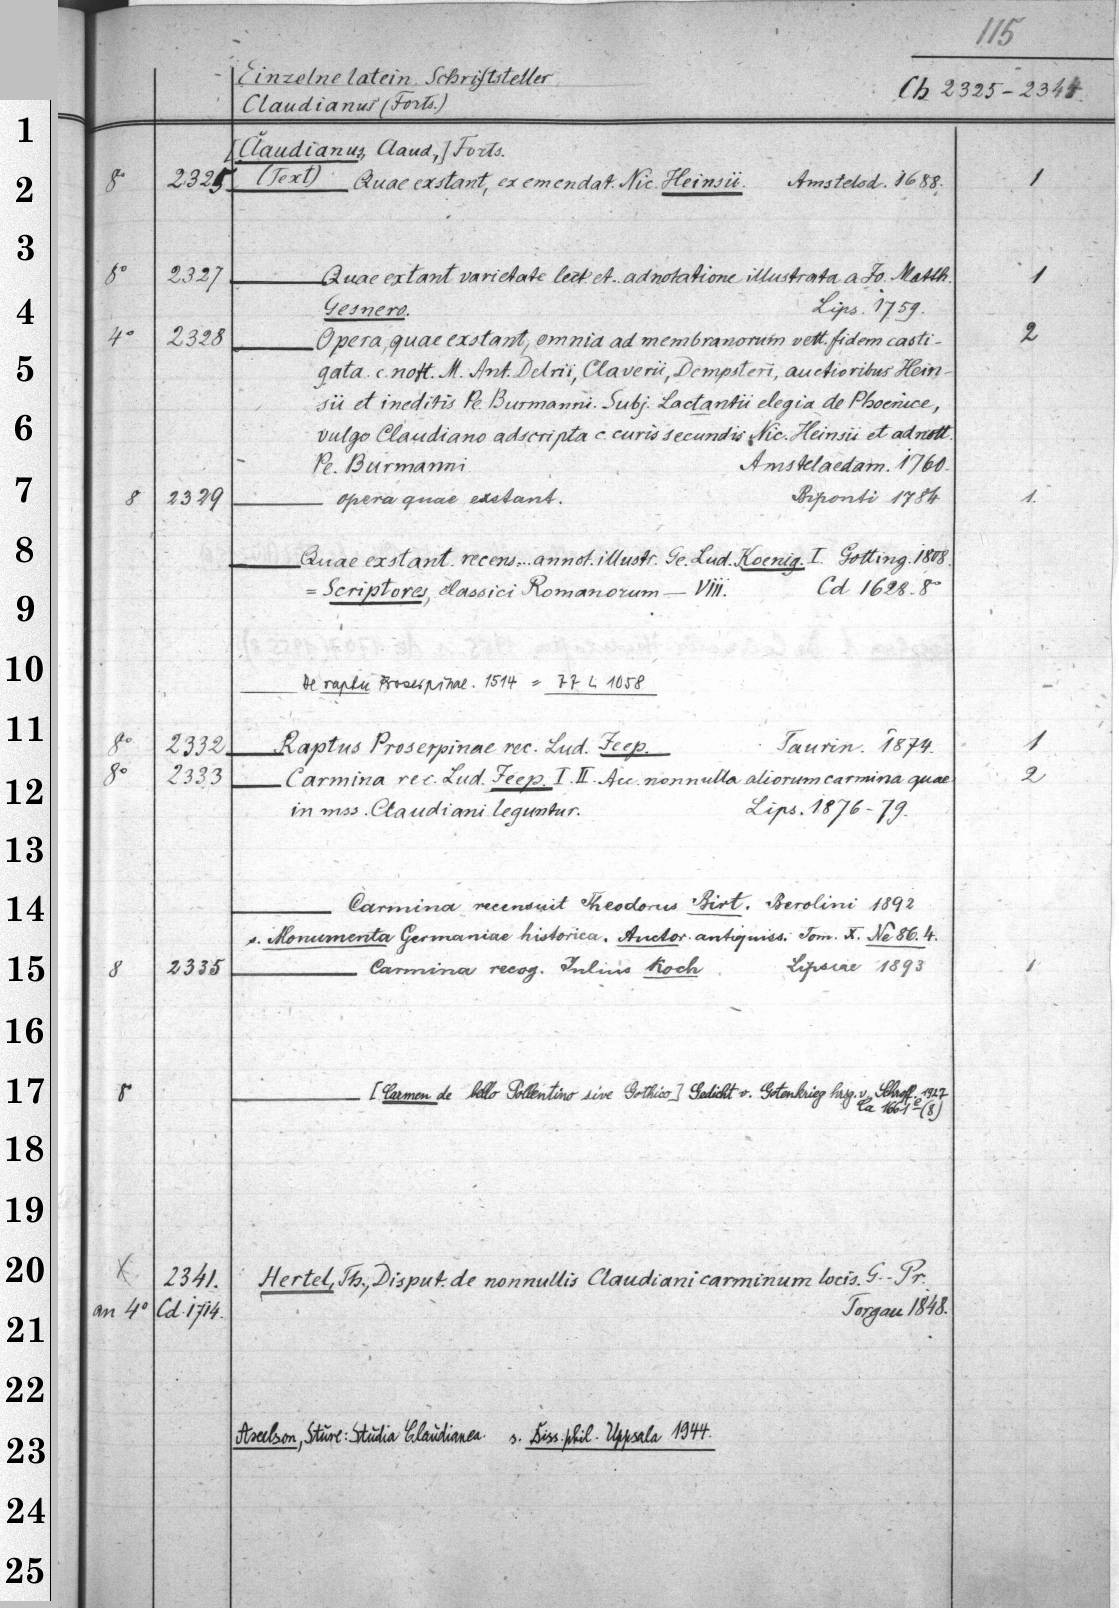 115
Einzelne latein. Schriftsteller
Claudianus (Forts.)
Cb 2325-2344
[Claudianus, Claud,] Forts.
8° 2325 (Text) Quae exstant, ex emendat. Nic. Heinsii. Amstelod. 1688. 1
8° 2327 Quae extant varietate lect. et adnotatione illustrata a Jo. Matth. 1
Gesnero. Lips. 1759.
4° 2328 Opera, quae exstant, omnia ad membranorum vett. fidem casti- 2
gata c. nott. M. Ant. Delrii, Claverii, Dempsteri, auctioribus Hein-
sii et ineditis Pe. Burmanni. Subj. Lactantii elegia de Phoenice,
vulgo Claudiano adscripta c. curis secundis Nic. Heinsii et adnott.
Pe. Burmanni Amstelaedam. 1760.
8 2329 opera quae exstant. Biponti 1784 1.
Quae exstant. recens... annot. illustr. Ge. Lud. Koenig. I. Gotting. 1808.
= Scriptores, classici Romanorum — VIII. Cd 1628. 8°
De raptu Proserpinae. 1514 = 77 L 1058
8° 2332 Raptus Proserpinae rec. Lud. Jeep. Taurin. 1874. 1
8° 2333 Carmina rec. Lud. Jeep. I. II. Acc. nonnulla aliorum carmina quae 2
in mss. Claudiani leguntur. Lips. 1876-79.
Carmina recensuit Theodorus Birt. Berolini 1892
s. Monumenta Germaniae historica. Auctor. antiquiss. Tom. X. Ne 86. 4.
8 2335 Carmina recog. Julius Koch Lipsiae 1893 1
8 [Carmen de bello Pollentino sive Gothico] Gedicht v. Gotenkrieg hrsg. v. Schroff. 1927
Ca 1661 e (8)
2341. Hertel, Th., Disput. de nonnullis Claudiani carminum locis. G.-Pr.
an 4° Cd. 1714. Torgau 1848.
Axelson, Sture: Studia Claudianea. s. Diss. phil. Uppsala 1944.
1
2
3
4
5
6
7
8
9
10
11
12
13
14
15
16
17
18
19
20
21
22
23
24
25